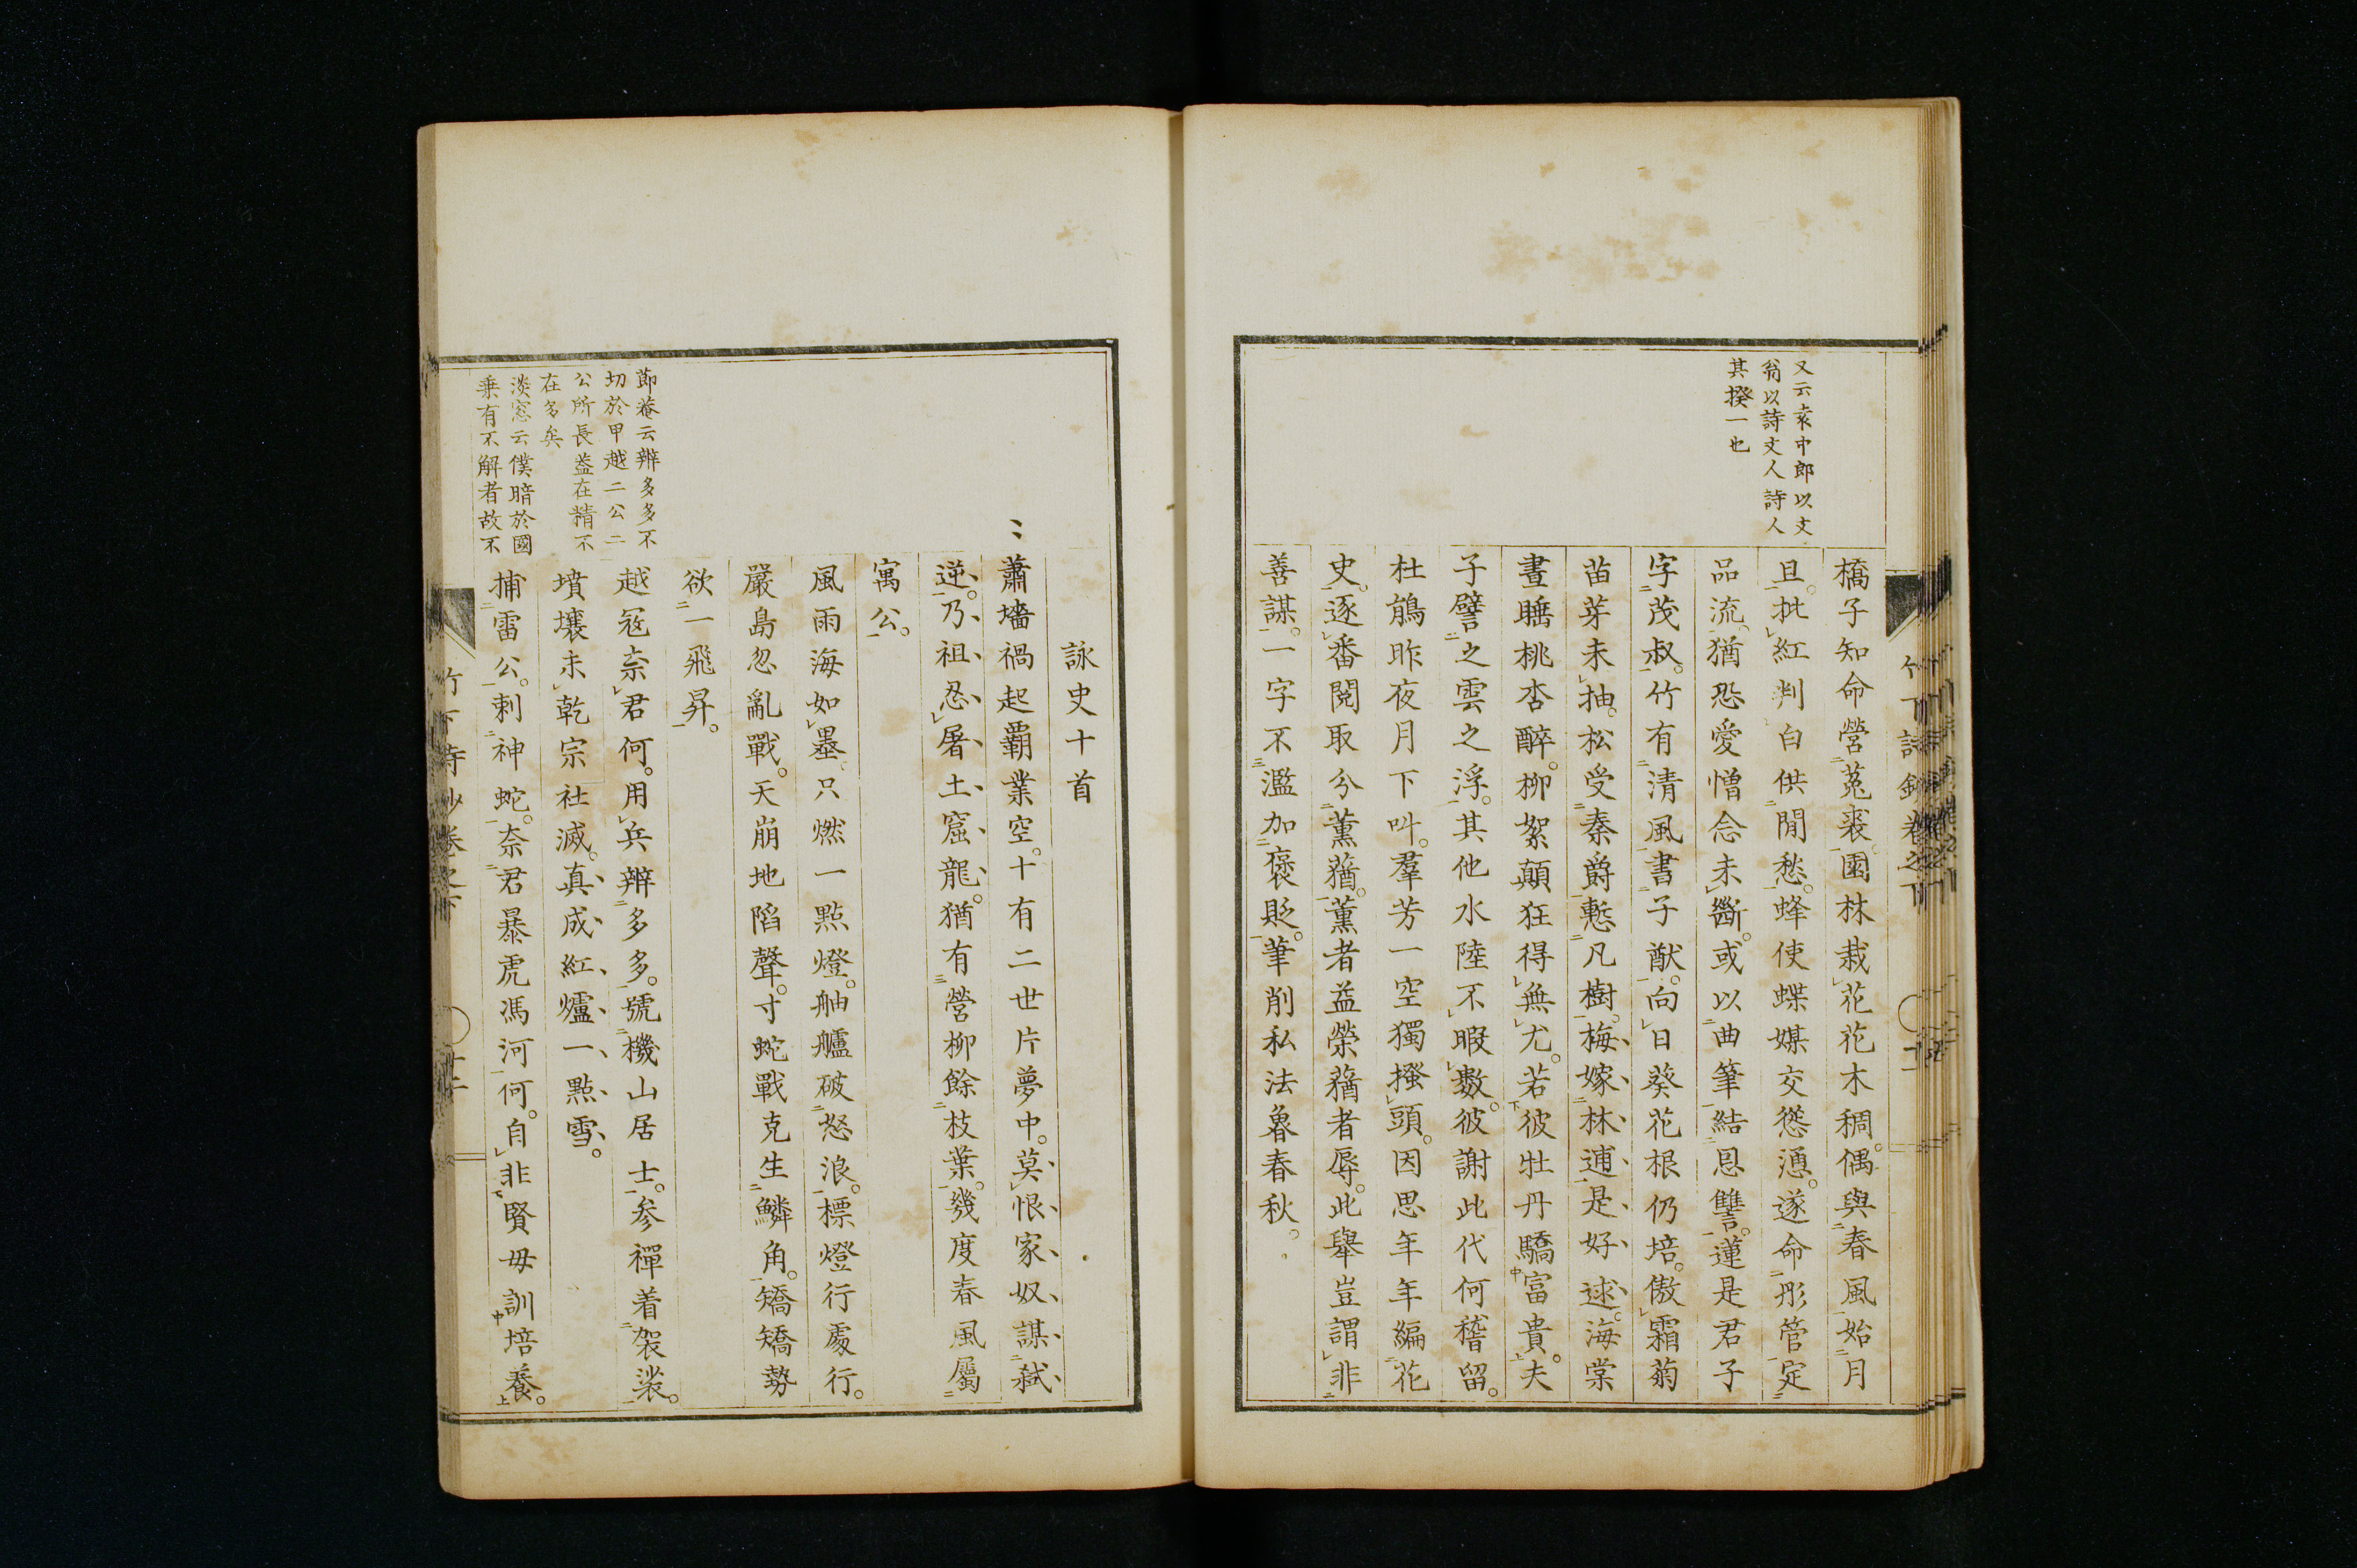 又云袁中郎以文
翁以詩文人詩人
其揆一也
橋子知命營菟裘園林栽花花木稠偶與春風始月
旦批紅判白供閒愁蜂使蝶媒交慫慂遂命彤管定
品流猶恐愛憎念未斷或以曲筆結恩讐蓮是君子
字茂叔竹有清風書子猷向日葵花根仍培傲霜菊
苗芽未抽松受秦爵慙凡樹梅嫁林逋是好逑海棠
晝睡桃杏醉柳絮顛狂得無尤若彼牡丹驕富貴夫
子譬之雲之浮其他水陸不暇數彼謝此代何稽留
杜鵑昨夜月下叫羣芳一空獨搔頭因思年年編花
史逐番閱取分薰蕕薰者益榮蕕者辱此舉豈謂非
善謀一字不濫加褒貶筆削私法魯春秋
詠史十首
蕭墻禍起覇業空十有二世片夢中莫恨家奴謀弑
逆乃祖忍屠土窟龍猶有營柳餘枝葉幾度春風屬
寓公
風雨海如墨只燃一點燈舳艫破怒浪標燈行處行
嚴島忽亂戰天崩地陷聲寸蛇戰克生鱗角矯矯勢
欲一飛昇
越冦奈君何用兵辨多多號機山居士参禪着袈裟
墳壤未乾宗社滅真成紅爐一點雪
捕雷公刺神蛇奈君暴虎馮河何自非賢母訓培養
節菴云辨多多不
切於甲越二公二
公所長葢在精不
在多矣
淡窓云僕暗於國
乗有不解者故不